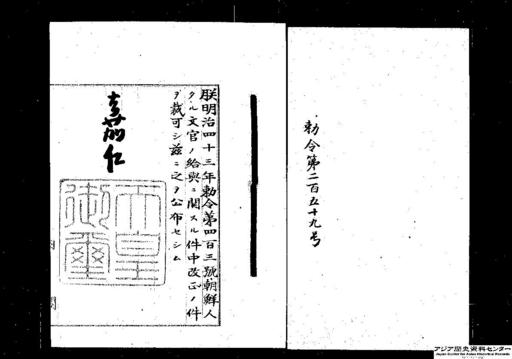 勅令第二百五十九号
朕明治四十三年勅令第四百三號朝鮮人
タル文官ノ給與ニ關スル件中改正ノ件
ヲ裁可シ茲ニ之ヲ公布セシム
嘉仁
天皇
御璽
内閣
アジア歴史資料センター
Japan Center for Asian Historical Records